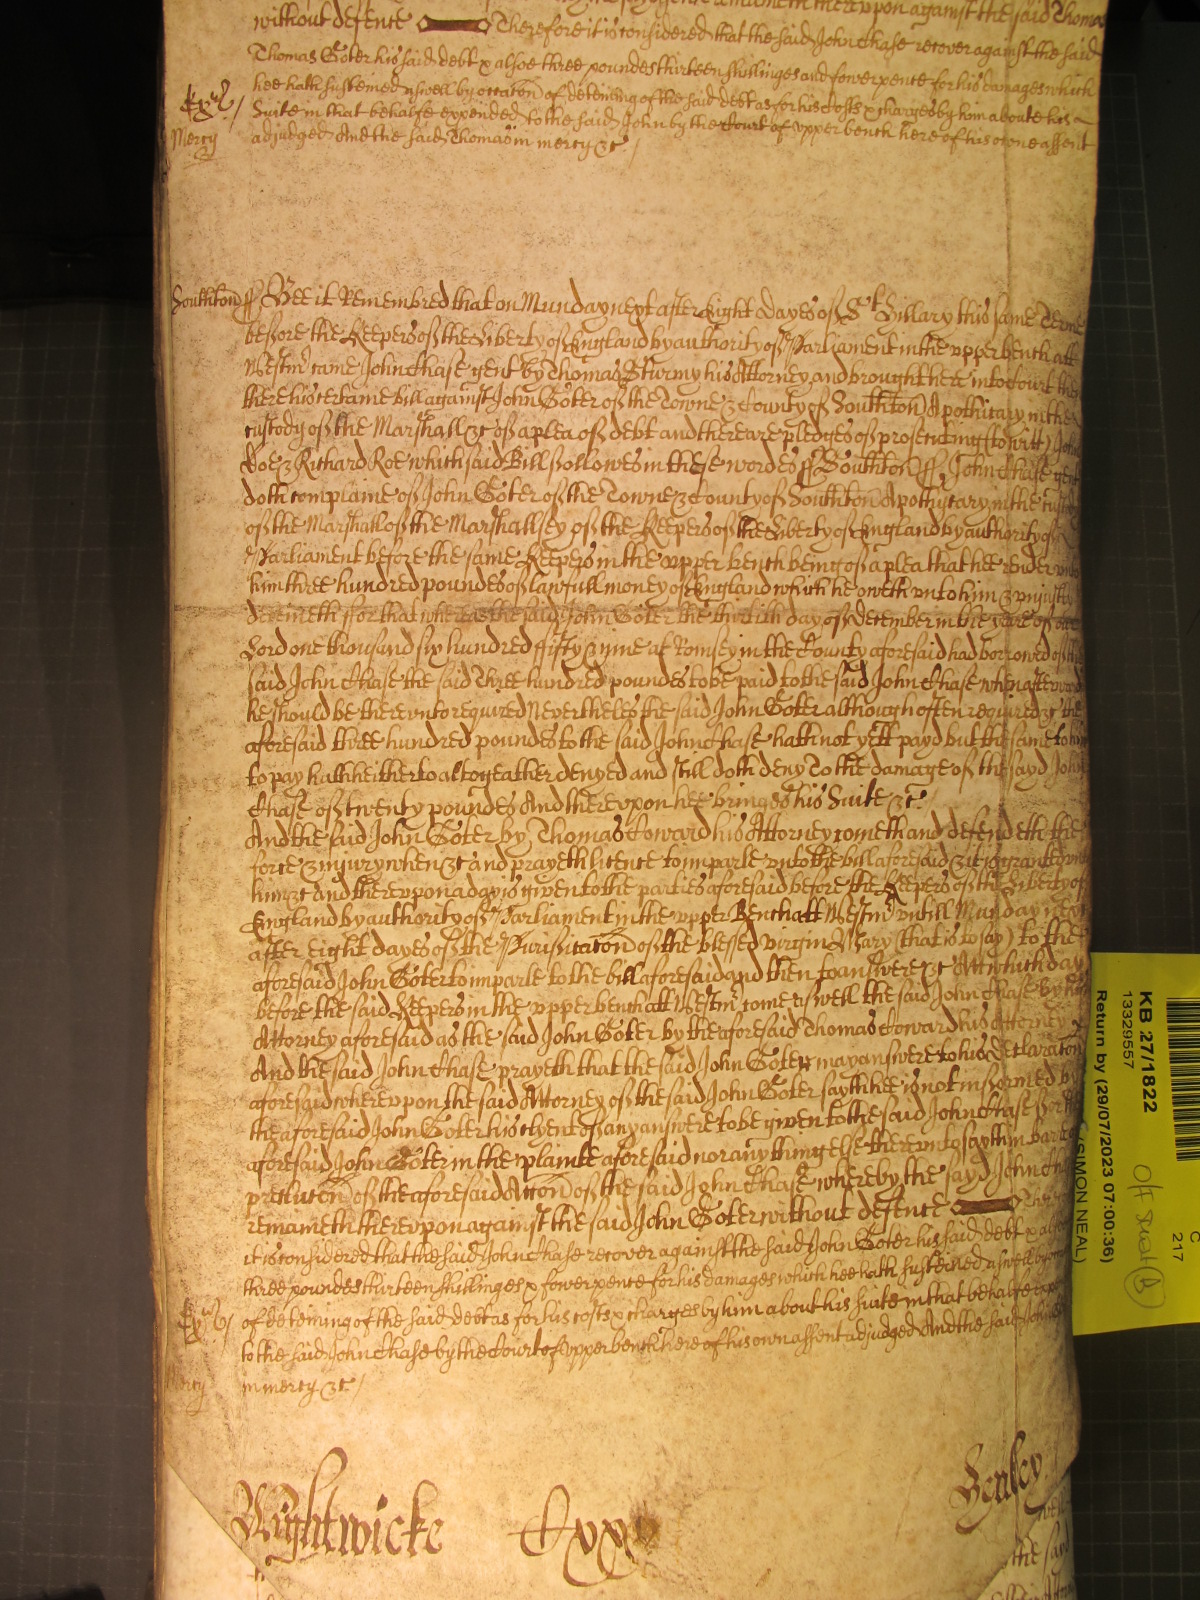 remaineth thereupon against the said Thomas
without defence Therefore it is considered that the said John Chase recover against the said
Thomas Goter his said debt & alsoe three poundes thirteen shillinges and fower pence for his damages which
hee hath susteined aswell by occacon of deteining of the said debt as for his Costs & charges by him about his
Suite in that behalfe expended to the said John by the Court of vpper bench here of his owne assent
adjudged And the said Thomas in mercy &c
Mercy
Southton ss Bee it Remembred that on Munday next after Eight Dayes of St Hillary this same Terme
before the Keepers of the Liberty of England by authority of Parliament in the vpper bench att
Westmr came John Chase gent by Thomas Sturmy his Attorney and brought here into Court then
there his certaine bill against John Goter of the Towne & County of Southton Apothicary in the
custody of the Marshall &c of a plea of debt and there are pledges of prosecuting (to witt) John
Doe & Richard Roe which said Bill followes in these wordes ss Southton ss John Chase gent
doth complaine of John Goter of the Towne & County of Southton Apothycary in the custody
of the Marshall of the Marshallsey of the Keepers of the Liberty of England by authority of
Parliament before the same Keepers in the vpper bench being of a plea that hee render vnto
him three hundred poundes of lawfull money of England which he oweth vnto him & vniustly
deteineth ffor that whereas the said John Goter the day of december in the yeare of our
Lord one thousand six hundred fifty & nine at Romsey in the County aforesaid had borrowed of the
said John Chase the said Three hundred poundes to be paid to the said John Chase when afterward
he should be therevnto required Neverthelesse the said John Goter although often required &c the
aforesaid three hundred poundes to the said John Chase hath not yett payd but the same to him
to pay hath hitherto altogeather denyed and still doth deny To the damage of the sayd John
Chase of twenty poundes And therevpon hee bringes his Suite &c
And the said John Goter by Thomas Coward his Attorney cometh and defendeth the
force & iniury when &c And prayeth licence to imparle vnto the bill aforesaid & it is granted vnto
him &c And therevpon a day is given to the parties aforesaid before the Keepers of the Liberty of
England by authority of Parliament in the vpper Bench att Westmr vntill Munday next
after eight dayes of the Purificacon of the blessed virgin Mary (that is to say) to the
aforesaid John Goter to imparle to the bill aforesaid and then to answere &c Att which day
before the said Keepers in the vpper bench att Westmr come aswell the said John Chase by his
Attorney aforesaid as the said John Goter by the aforesaid Thomas Coward his Attorney
And the said John Chase prayeth that the said John Goter may answere to his Declaracon
aforesaid wherevpon the said Attorney of the said John Goter sayth hee is not informed by
the aforesaid John Goter his clyent of any answere to be given to the said John Chase for the
aforesaid John Goter in the plainte aforesaid nor any thing else therevnto sayth in barre
of the aforesaid Accon of the said John Chase whereby the sayd John Chase
remaineth therevpon against the said John Goter without defence
it is considered that the said John Chase recover against the said John Goter his said debt & alsoe
three poundes thirteen shillinges & fower pence for his damages which hee hath susteined aswell by
of deteining of the said debt as for his costs & charges by him about his suite in that behalfe
to the said John Chase by the Court of vpper bench here of his own assent adjudged And the said John
Mercy in mercy &c
Wightwicke Henley
KB 27/1822
13329557
Return by (29/07/2023 07:00:36)
(SIMON NEAL)
C
217